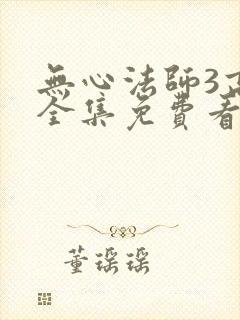 無心法師3
全集免費看
董瑤瑤